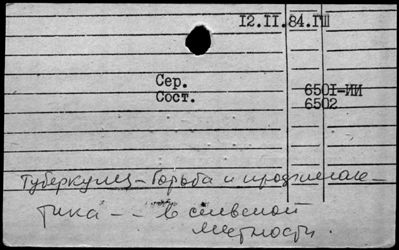 12.II.84.ГШ
Сер.
Сост.
6501-ИИ
6502
Туберкулез - борьба и профилак-
тика -- в сельской
местности.